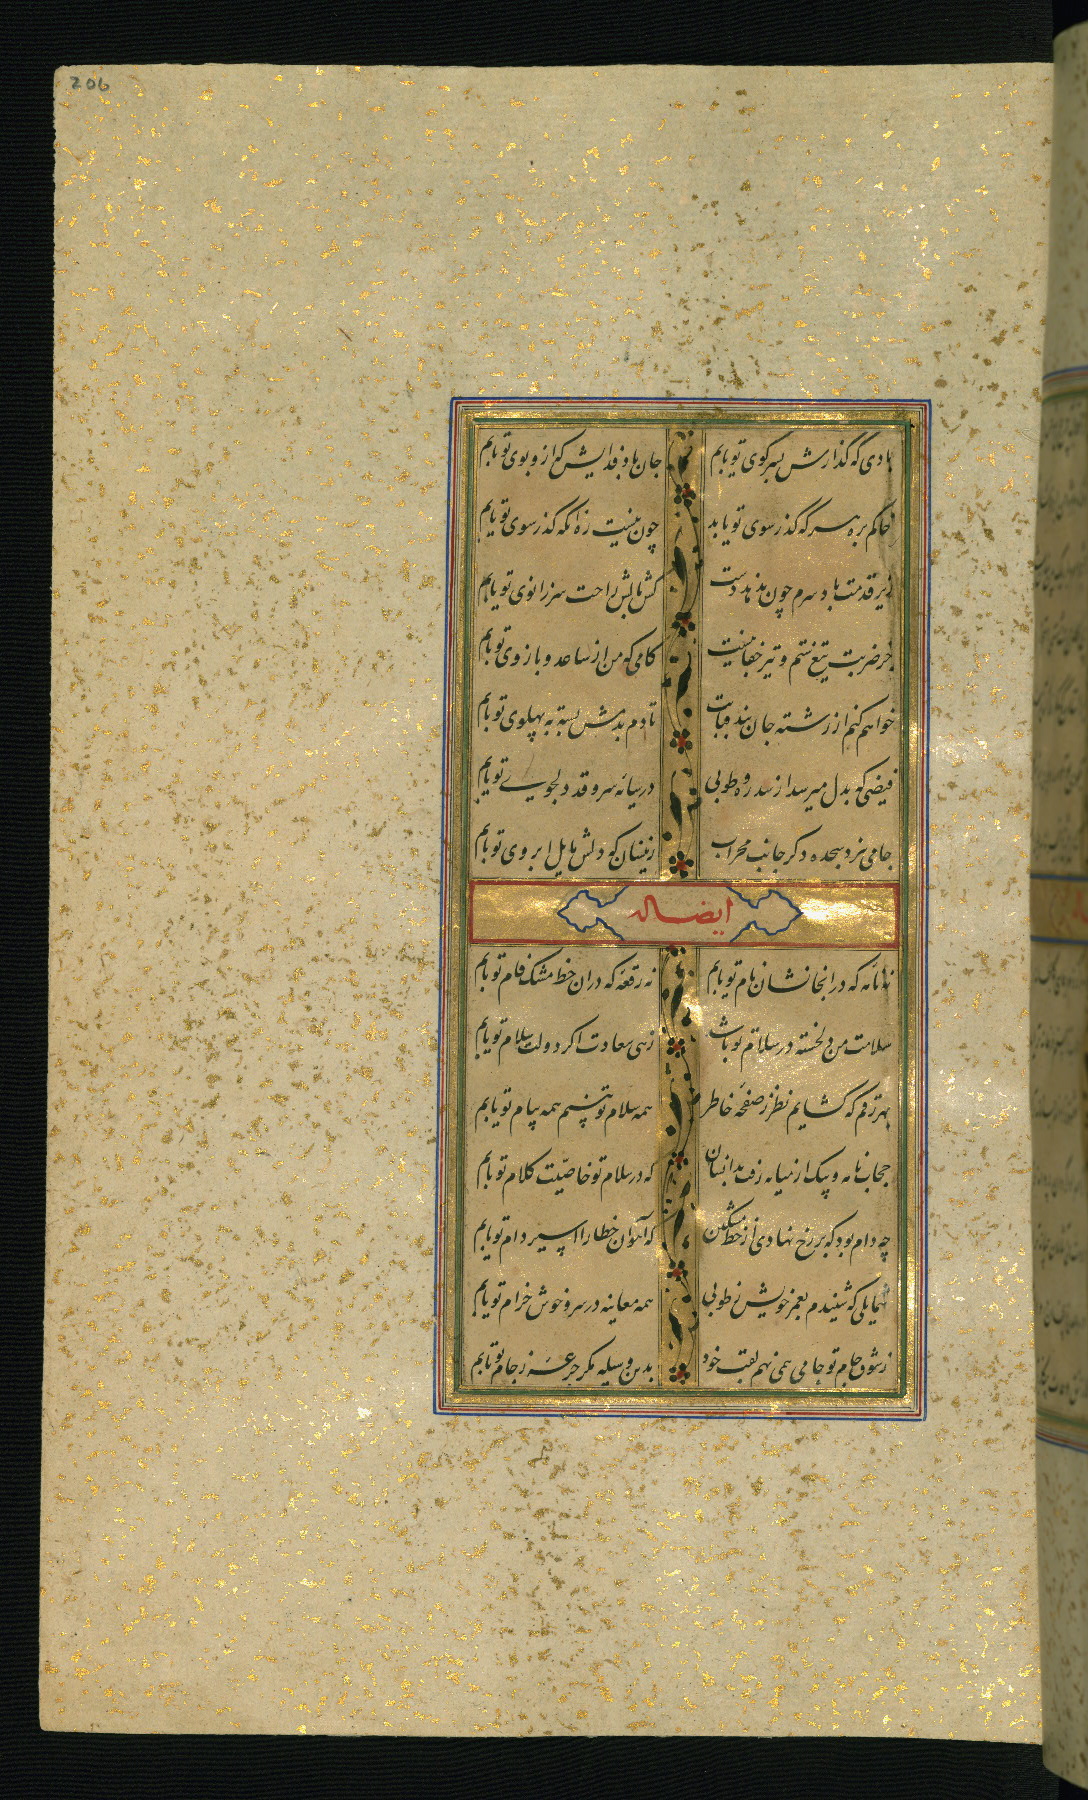 206
بادی که گذارش بسر کوی تو یابم جان باد فدایش که ازو بوی تو یابم
خاکم بره هر که گذر سوی تو یابد چون نیست ره آنکه گذر سوی تو یابم
زیر قدمت باد سرم چون ندهد دست کش بالش راحت سر زانوی تو یابم
جز ضربت تیغ ستم و تیر جفا نیست کامی که من از ساعد و بازوی تو یابم
خواهم کنم از رشته جان بند قبایت تا دم بدمش بسته به پهلوی تو یابم
فیضی که بدل میرسد از سدره و طوبی در سایه سرو قد دلجوی تو یابم
جامی نبرد سجده دگر جانب محراب زینسان که دلش مایل ابروی تو یابم
ایضا له
نه نامه که در انجا نشان نام تو یابم نه رقعه که دران خط مشک فام تو یابم
سلامت من دلخسته در سلام تو باشد زهی سعادت اگر دولت سلام تو یابم
بهر رقم که گشایم نظر ز صفحه خاطر همه سلام تو بینم همه پیام تو یابم
حجاب نامه و پیک از میانه رفت بدانسان که در سلام تو خاصیت کلام تو یابم
چه دام بود که بر رخ نهادی از خط مشکین که آهوان خطا را اسیر دام تو یابم
شمایلی که شنیدم بعمر خویش ز طوبی همه معاینه در سرو خوش خرام تو یابم
ز شوق جام تو جامی همی نهم لقب خود بدین وسیله مگر جرعه ز جام تو یابم